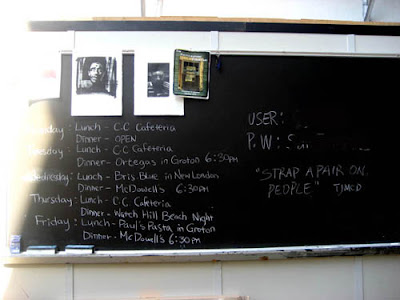 Lunch - C.C Cafeteria
Dinner - OPEN
Tuesday: Lunch - C.C Cafeteria
Dinner- Ortegas in Groton 6:30pm
Wednesday: Lunch - Bris Blue in New London
Dinner - McDowell's 6:30pm
Thursday: Lunch- C.C. Cafeteria
Dinner- Watch Hill Beach Night
Friday: Lunch- Paul's Pasta in Groton
Dinner - McDowell's 6:30pm
USER:
P.W:
"STRAP A PAIR ON,
PEOPLE" TJMCD